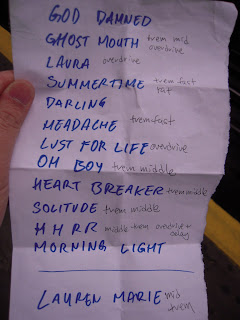 GOD DAMNED
GHOST MOUTH trem mid overdrive
LAURA overdrive
SUMMERTIME trem fast rat
DARLING
HEADACHE trem fast
LUST FOR LIFE overdrive
OH BOY trem middle
HEART BREAKER trem middle
SOLITUDE trem middle
HHRR middle trem overdrive + delay
MORNING LIGHT
LAUREN MARIE mid trem